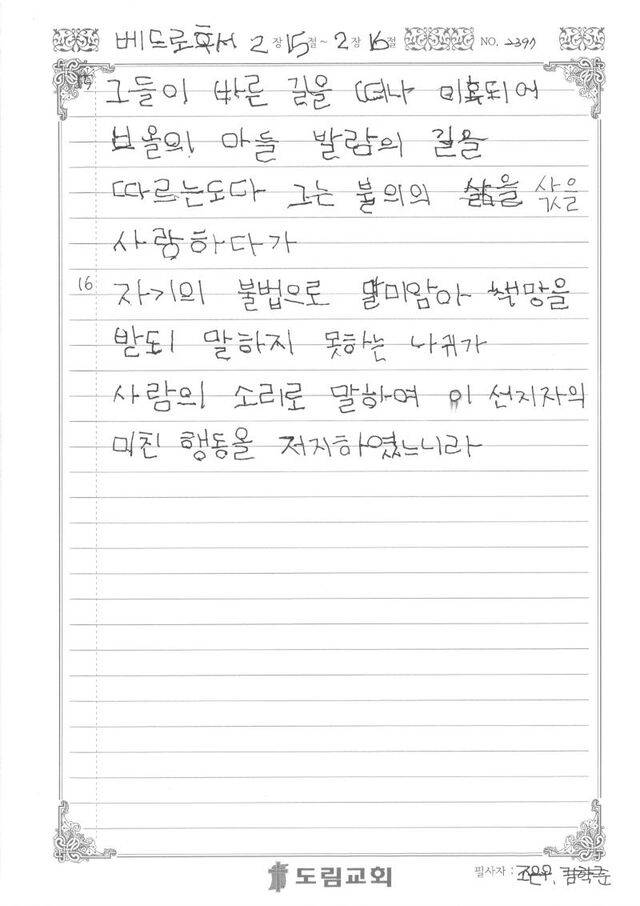 베드로후서 2장 15절~2장 16절 NO. 2397
15 그들이 바른 길을 떠나 미혹되어
브올의 아들 발람의 길을
따르는도다 그는 불의의 삯을 삯을
사랑하다가
16 자기의 불법으로 말미암아 책망을
받되 말하지 못하는 나귀가
사람의 소리로 말하여 이 선지자의
미친 행동을 저지하였느니라
도림교회
필사자 :